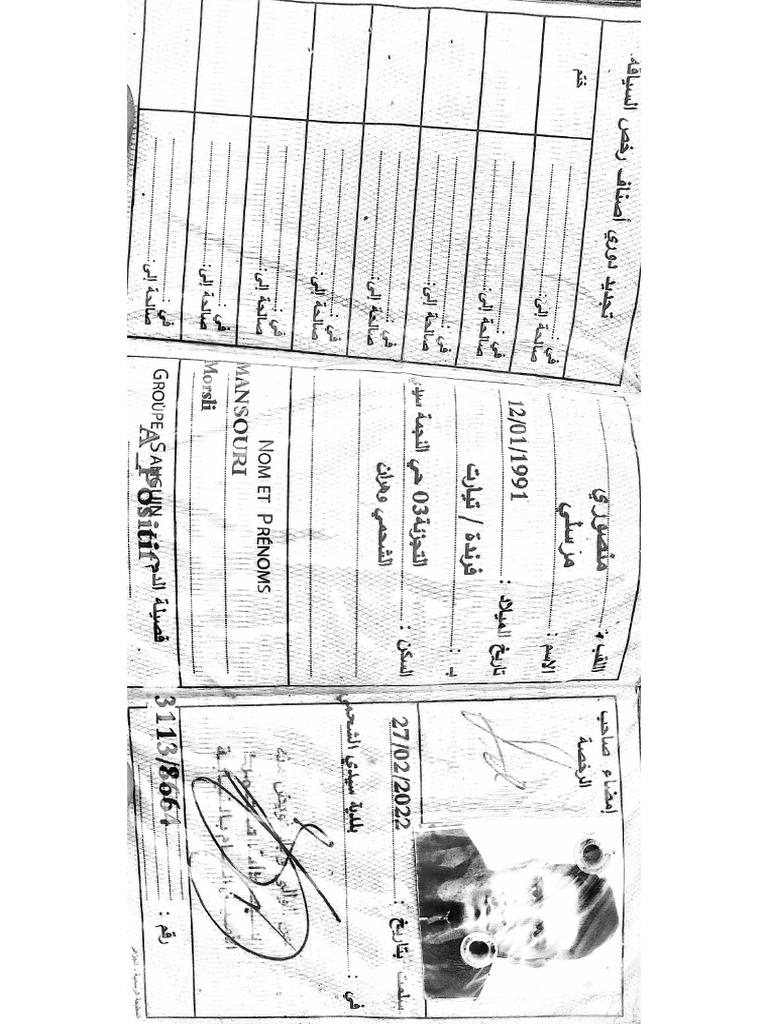 تجديد دوري أصناف رخص السياقة
ختم
في :
صالحة إلى :
في :
صالحة إلى :
في :
صالحة إلى :
في :
صالحة إلى :
في :
صالحة إلى :
في :
صالحة إلى :
في :
صالحة إلى :
في :
صالحة إلى :
اللقب : منصوري
الاسم : مرسلي
تاريخ الميلاد : 12/01/1991
ب : فرندة / تيارت
السكن : التجزئة 03 حي النجمة سيدي
الشحمي وهران
NOM ET PRÉNOMS
MANSOURI
Morsli
GROUPE SANGUIN فصيلة الدم
A Positif
إمضاء صاحب
الرخصة
سلمت بتاريخ : 27/02/2022
في : بلدية سيدي الشحمي
رقم : 3113/8664